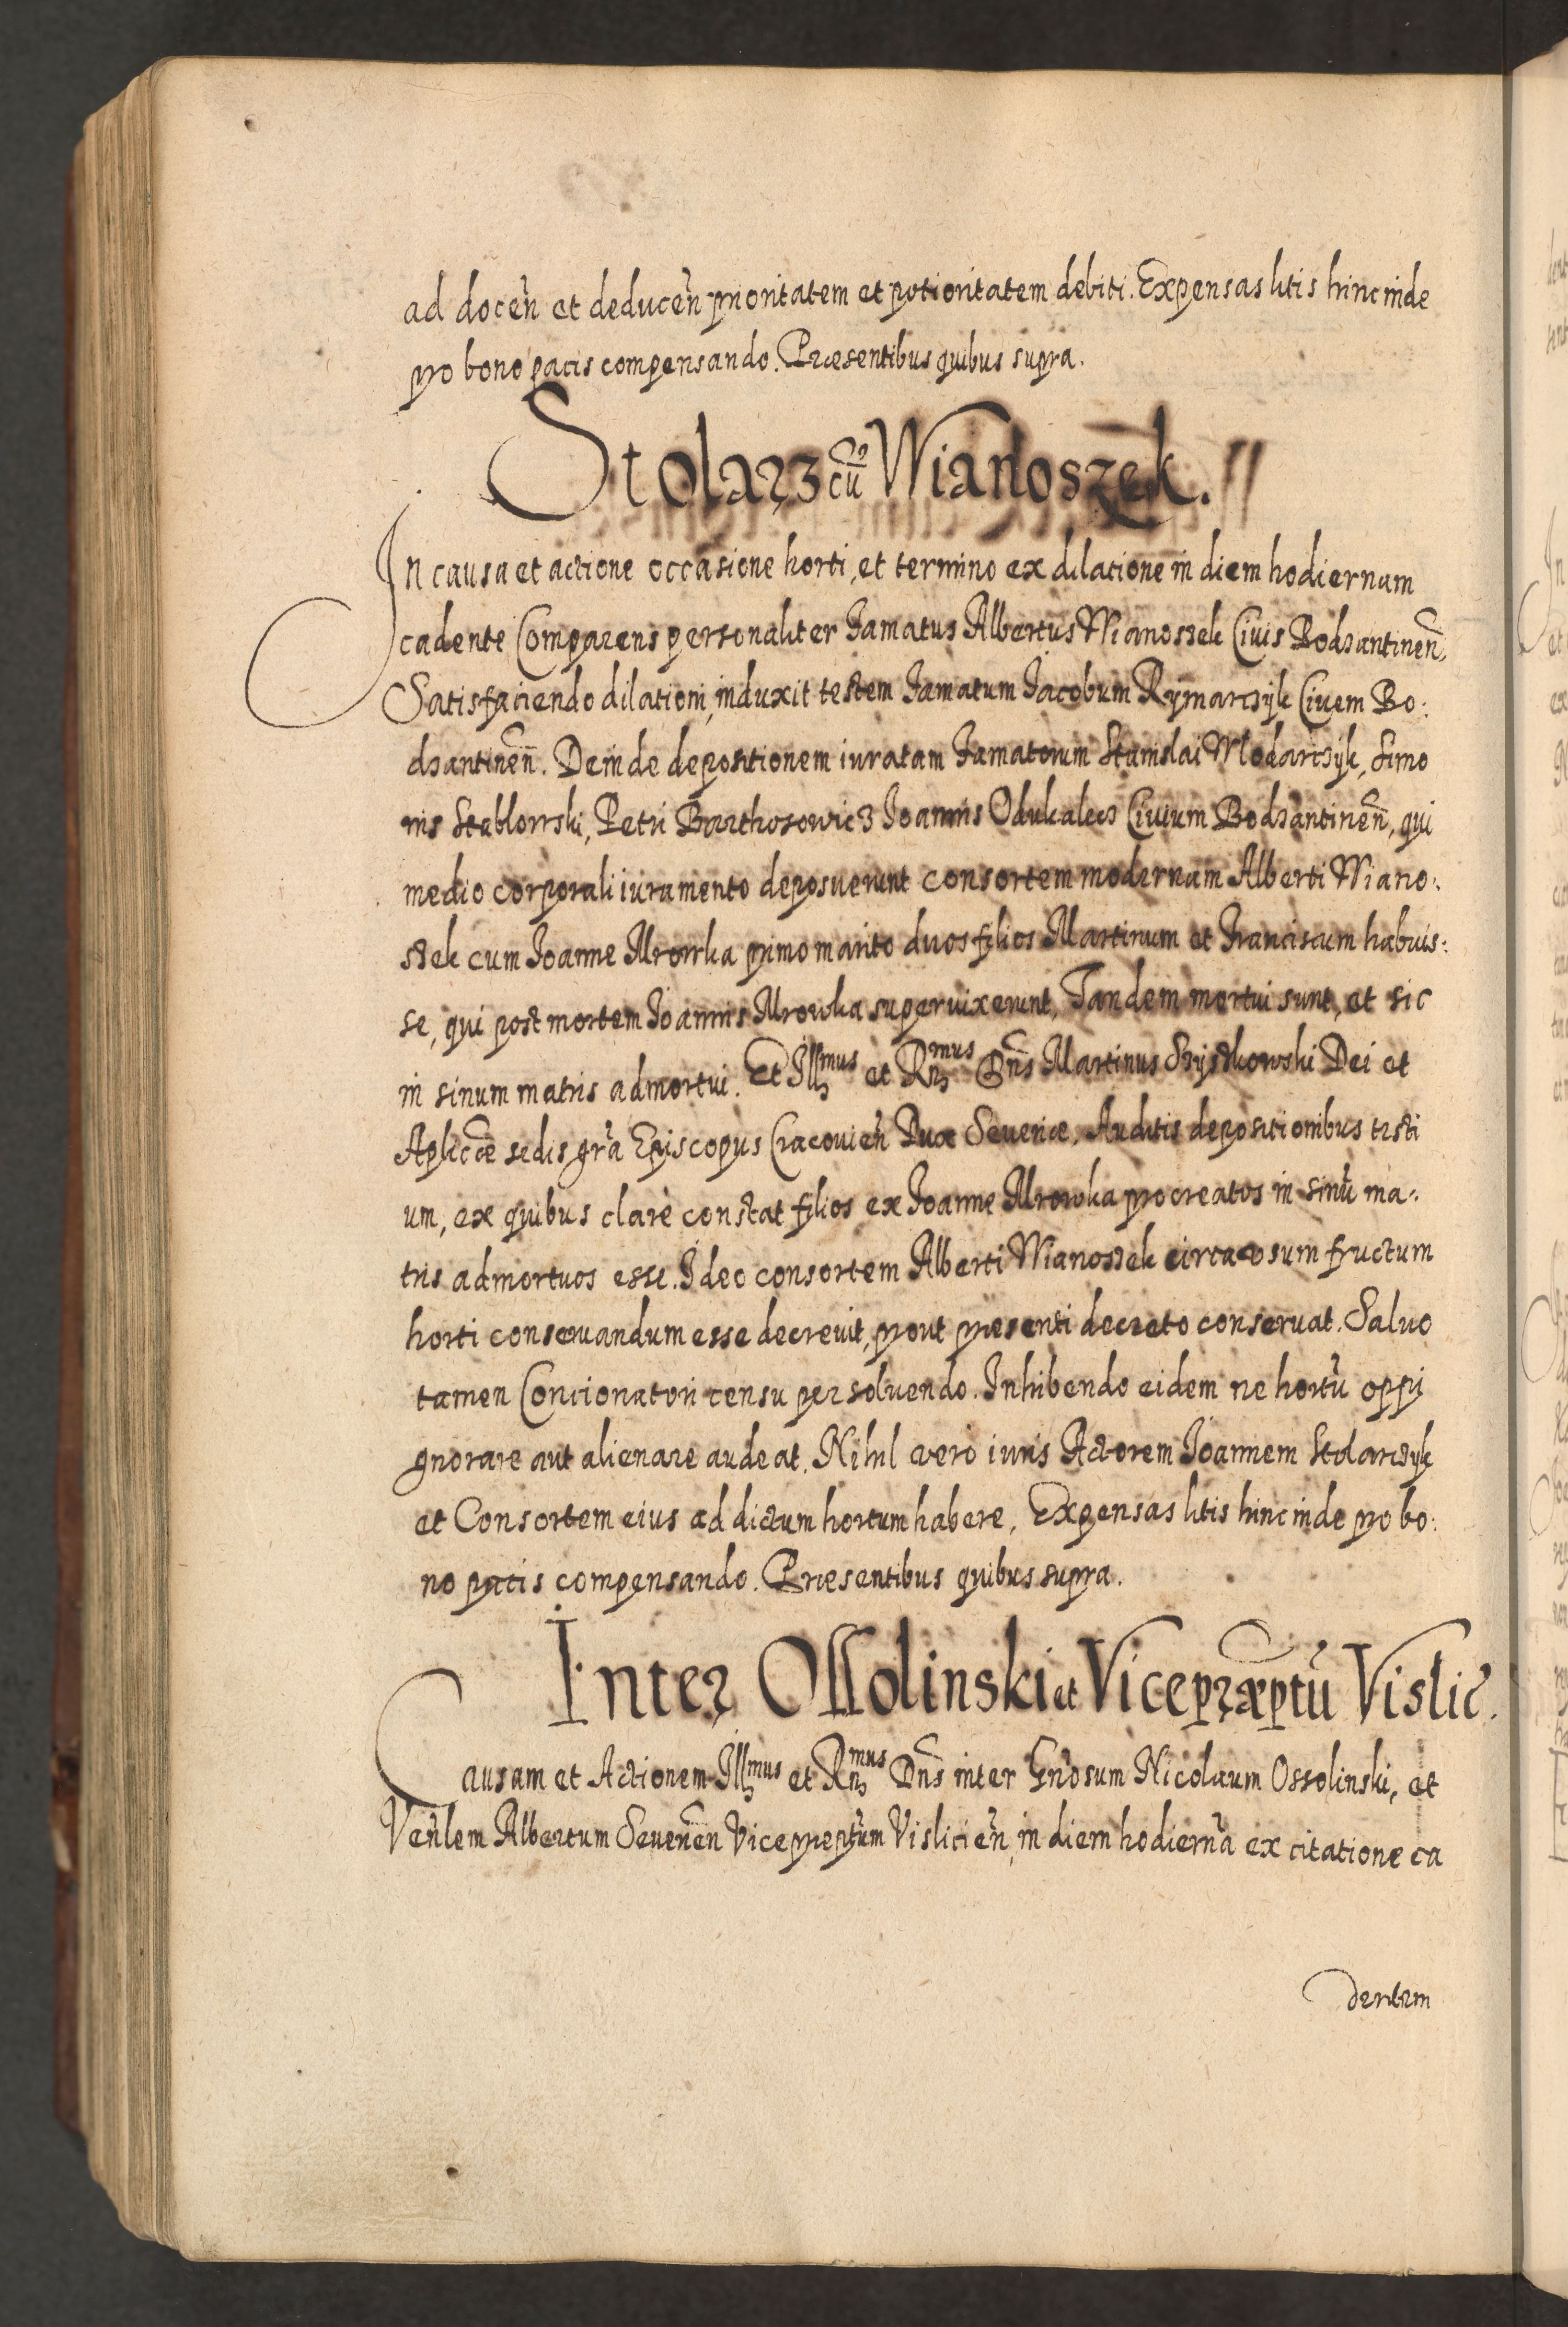 ad docen̄ et deducen̄ prioritatem et potioritatem debiti. Expensas litis hinc inde
pro bono pacis compensando. Præsentibus quibus supra.
Stolarz cū Wianoszek.
In causa et actione occasione horti, et termino ex dilatione in diem hodiernam
cadente Comparens personaliter Famatus Albertus Wianoszek Civis Bodzantinen̄,
Satisfaciendo dilationi, induxit testem Famatum Jacobum Rymarczyk Civem Bo:
dzantinen̄. Deinde depositionem iuratam Famatorum Stanislai Wlodarczyk, Simo
nis Stablowski, Petri Barthosowicz Joannis Odukalecz Civium Bodzantinen̄, qui
medio corporali iuramento deposuerunt consortem modernam Alberti Wiano:
szek cum Joanne Mrowka primo marito duos filios Martinum et Franciscum habuis:
se, qui post mortem Joannis Mrowka supervixerunt, Tandem mortui sunt, et sic
in sinum matris admortui. Et Illmus et Rmus Dn̄s Martinus Szyszkowski Dei et
Aplicæ sedis gr̄a Episcopus Cracovien̄ Dux Severiæ, Auditis depositionibus testi
um, ex quibus clarè constat filios ex Joanne Mrowka procreatos in sinū ma:
tris admortuos esse. Ideo consortem Alberti Wianoszek circa usum fructum
horti conservandum esse decrevit, prout præsenti decreto conservat. Salvo
tamen Concionatori censu persolvendo. Inhibendo eidem ne hortū oppi
gnorare aut alienare audeat. Nihil vero iuris Actorem Joannem Stolarczyk
et Consortem eius ad dictum hortum habere. Expensas litis hinc inde pro bo:
no pacis compensando. Præsentibus quibus supra.
Inter Ossolinski et Vicepræptū Vislic̄.
Causam et Actionem Illmus et Rmus Dn̄s inter Gn̄osum Nicolaum Ossolinski, et
Ven̄lem Albertum Severen̄ Vicepreptum Vislicien̄, in diem hodierna ex citatione ca
dentem